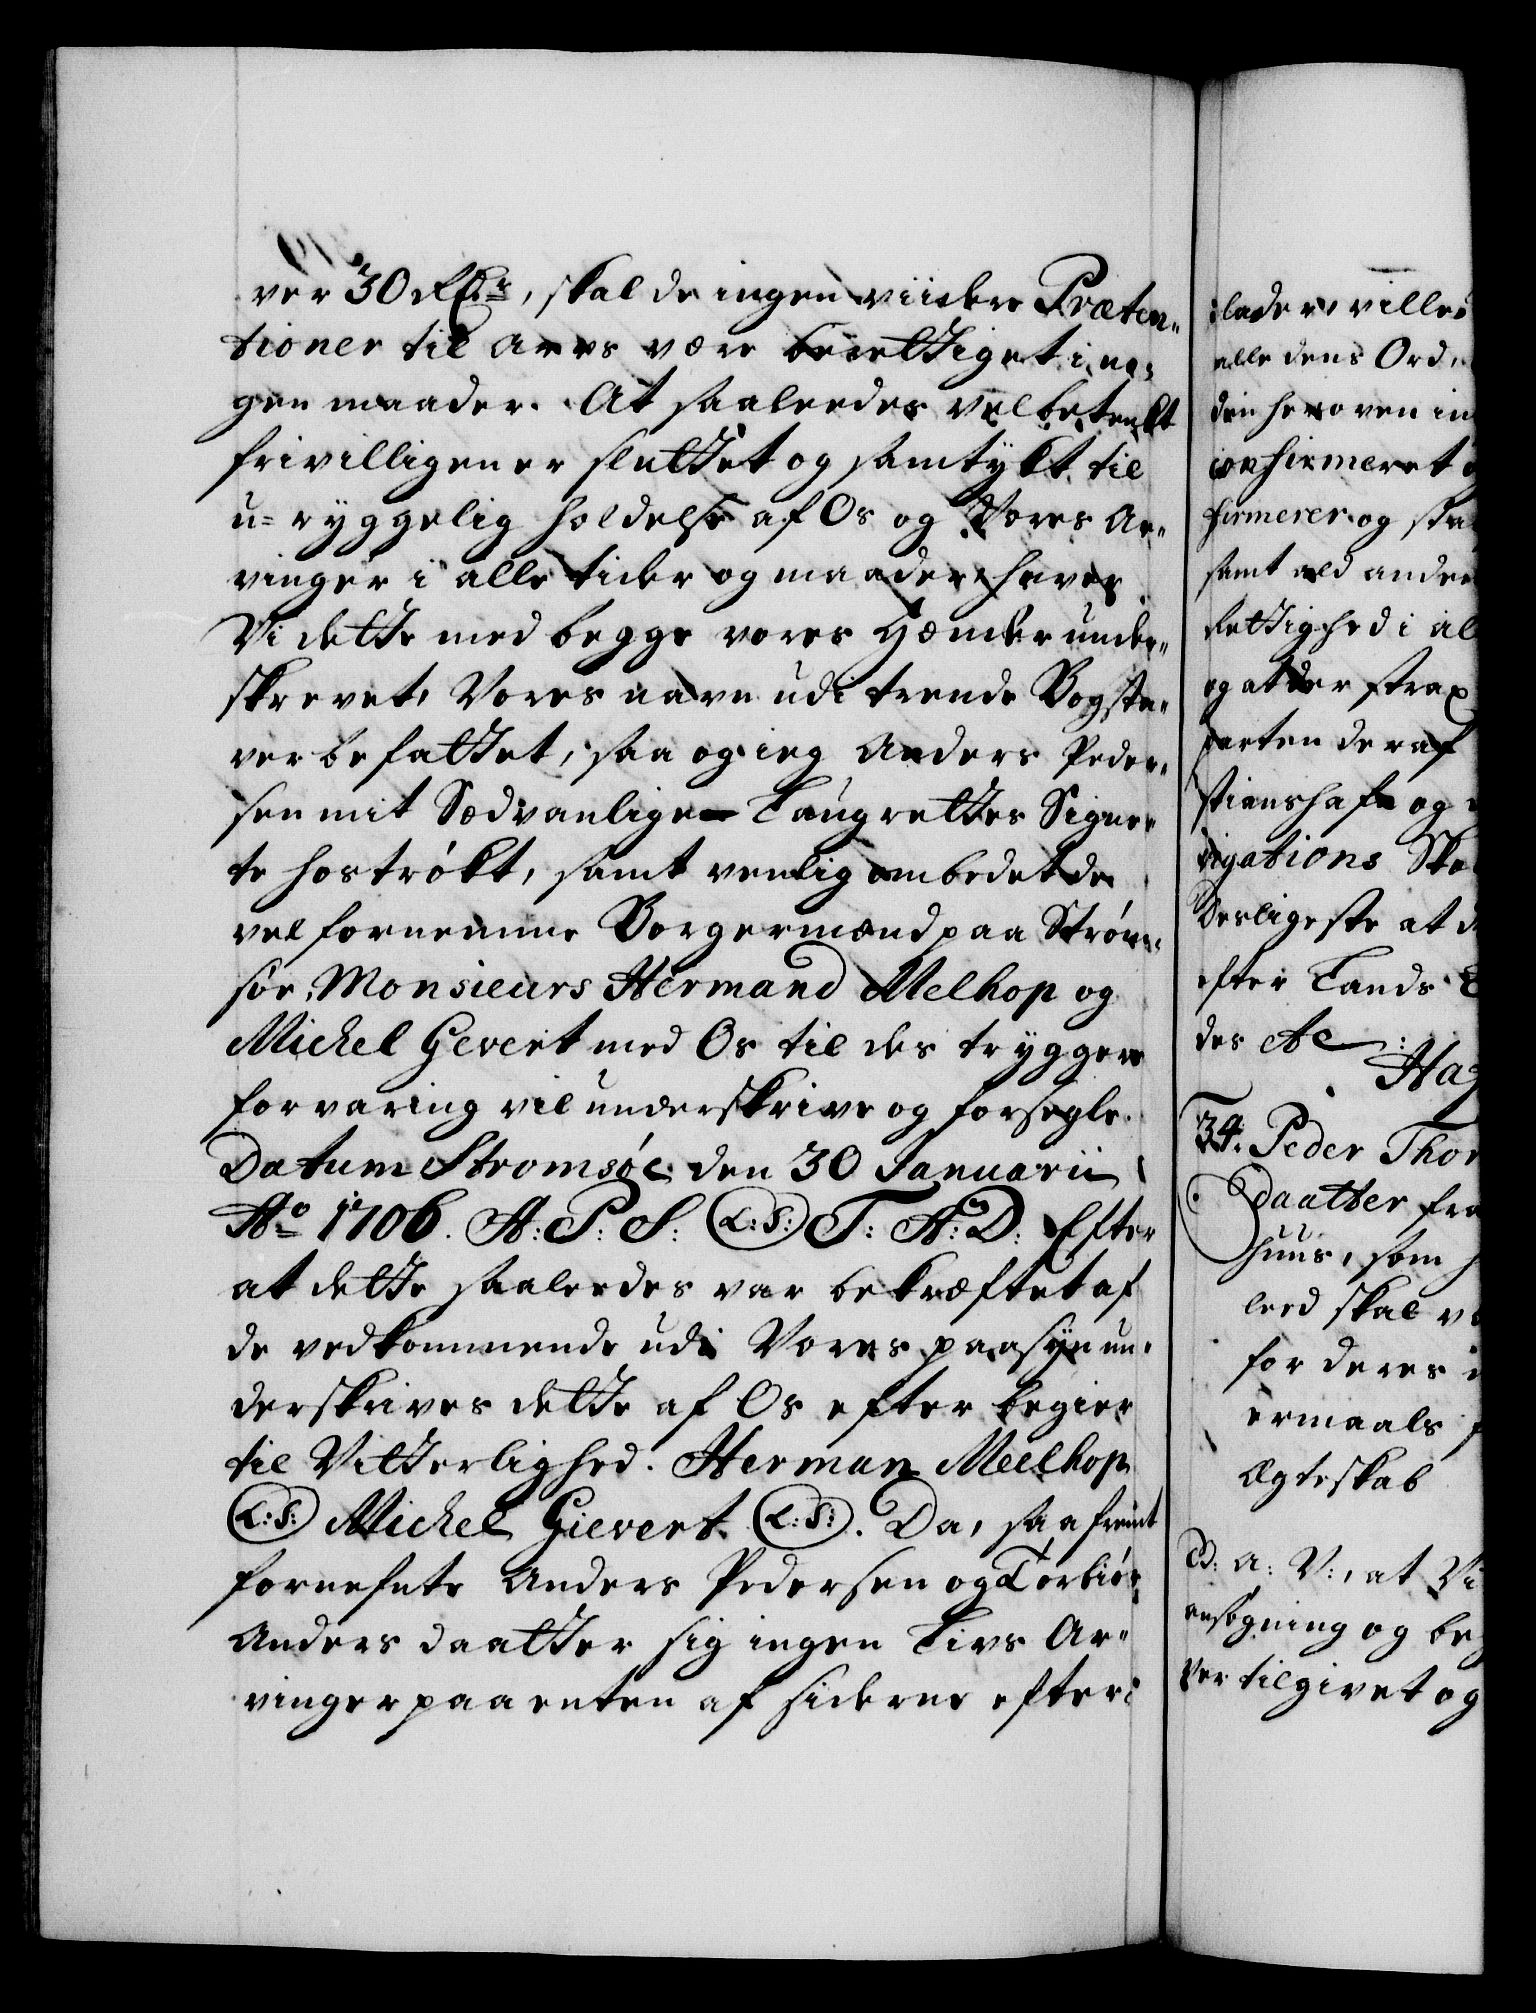 ver 30 Rdr, skal de ingen viidere Præten-
tioner til arvs være berettiget i no-
gen maader. At saaleedes velbetenkt
frivilligen er sluttet og samtykt, til
u-ryggelig holdelse af Os og Vores Ar-
vinger i alle tider og maader, haver
Vi dette med begge vores Hænder under-
skrevet, Vores navn udi trende Bogsta-
ver befattet, saa og ieg Anders Peder-
sen mit Sædvanlige Laugrettes Signe-
te hoströkt, samt venlig ombedet de
velfornemme Borgermænd paa Ström-
söe, Monsieurs Hermand Melhop og
Michel Gevert med Os til des tryggere
forvaring vil underskrive og forsegle.
Datum Stromsøe den 30 Januarii
Ao 1706. A: P: S: (L:S:) T: A: D: Efter
at dette saaleedes var bekræftet af
de vedkommende udi Vores paasyn un-
derskrives dette af Os efter begier
til Vitterlighed. Herman Meelhop
(L:S:) Michel Gievert (L:S:). Da, saafremt
fornefnte Anders Pedersen og Torbiör
Anders daatter sig ingen Livs Ar-
vinger paa enten af siderne efter
lader, ville
alle dens Ord,
den heroven in
confirmeret
firmerer og sta
samt ald anden
Rettighed i al
og at der strax
parten deraf
stianshafn og
vigations Sko
Desligeste at
efter Lands
des Ac:
Hag
34. Peder Thor
daatter fra
huus, som
leed skal v
for deres
ermaals
Ægteskab
C: a: V:, at Vi
ansøgning og beg
ver tilgivet og